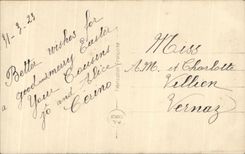 31-3-23
Better wishes for
a good merry Easter
Your Cousins
Jo and Alice
Miss
A.M. et Charlotte
Villien
Vernaz